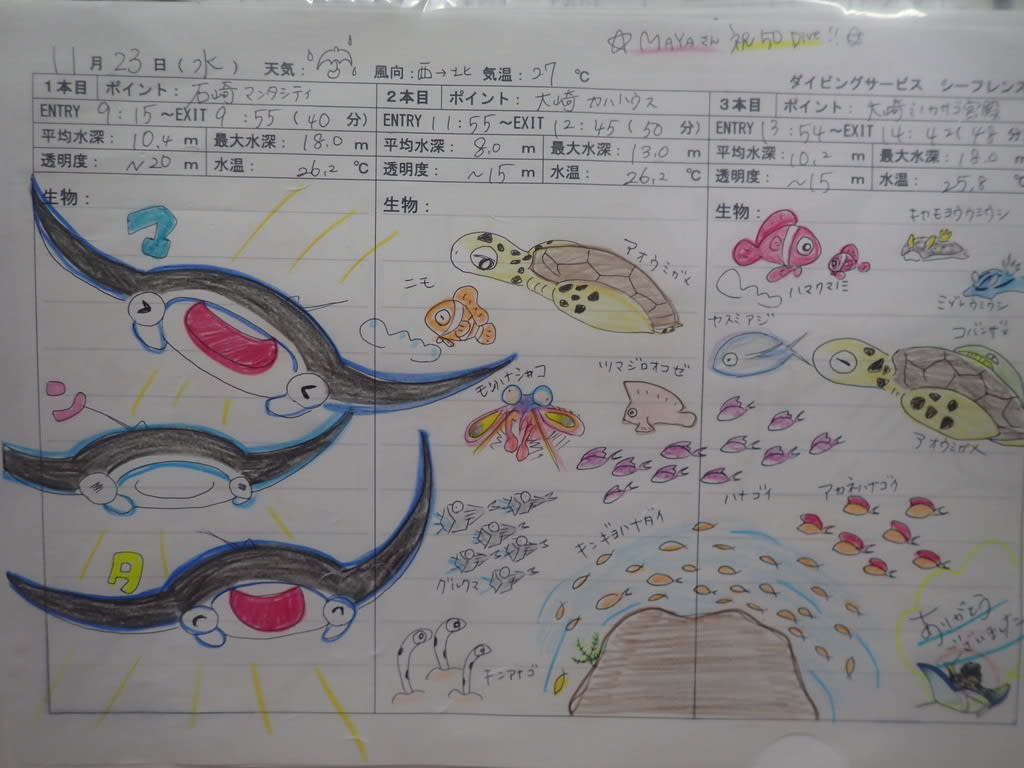 ☆ MAYAさん 祝50 Dive!! ☆
11月23日(水) 天気: 風向:西→北 気温:27℃
ダイビングサービス シーフレンズ
1本目 ポイント: 石崎マンタシティ
ENTRY 9:15~EXIT 9:55(40分)
平均水深: 10.4m 最大水深: 18.0m
透明度: ~20m 水温: 26.2℃
生物:
マ
ン
タ
2本目 ポイント: 大崎ハナハウス
ENTRY 11:55~EXIT 12:45(50分)
平均水深: 8.0m 最大水深: 13.0m
透明度: ~15m 水温: 26.2℃
生物:
アオウミガメ
ニモ
モンハナシャコ
ツマジロオコゼ
グルクマ
キンギョハナダイ
チンアナゴ
3本目 ポイント: 大崎
ENTRY 13:54~EXIT 14:42(48分)
平均水深: 10.2m 最大水深: 18.0m
透明度: ~15m 水温: 25.8℃
生物:
キャモヨウウミウシ
ハマクマノミ
ミゾレウミウシ
ヤスミアジ
コバンザメ
アオウミガメ
ハナゴイ
アカネハナゴイ
ありがとう
ございました